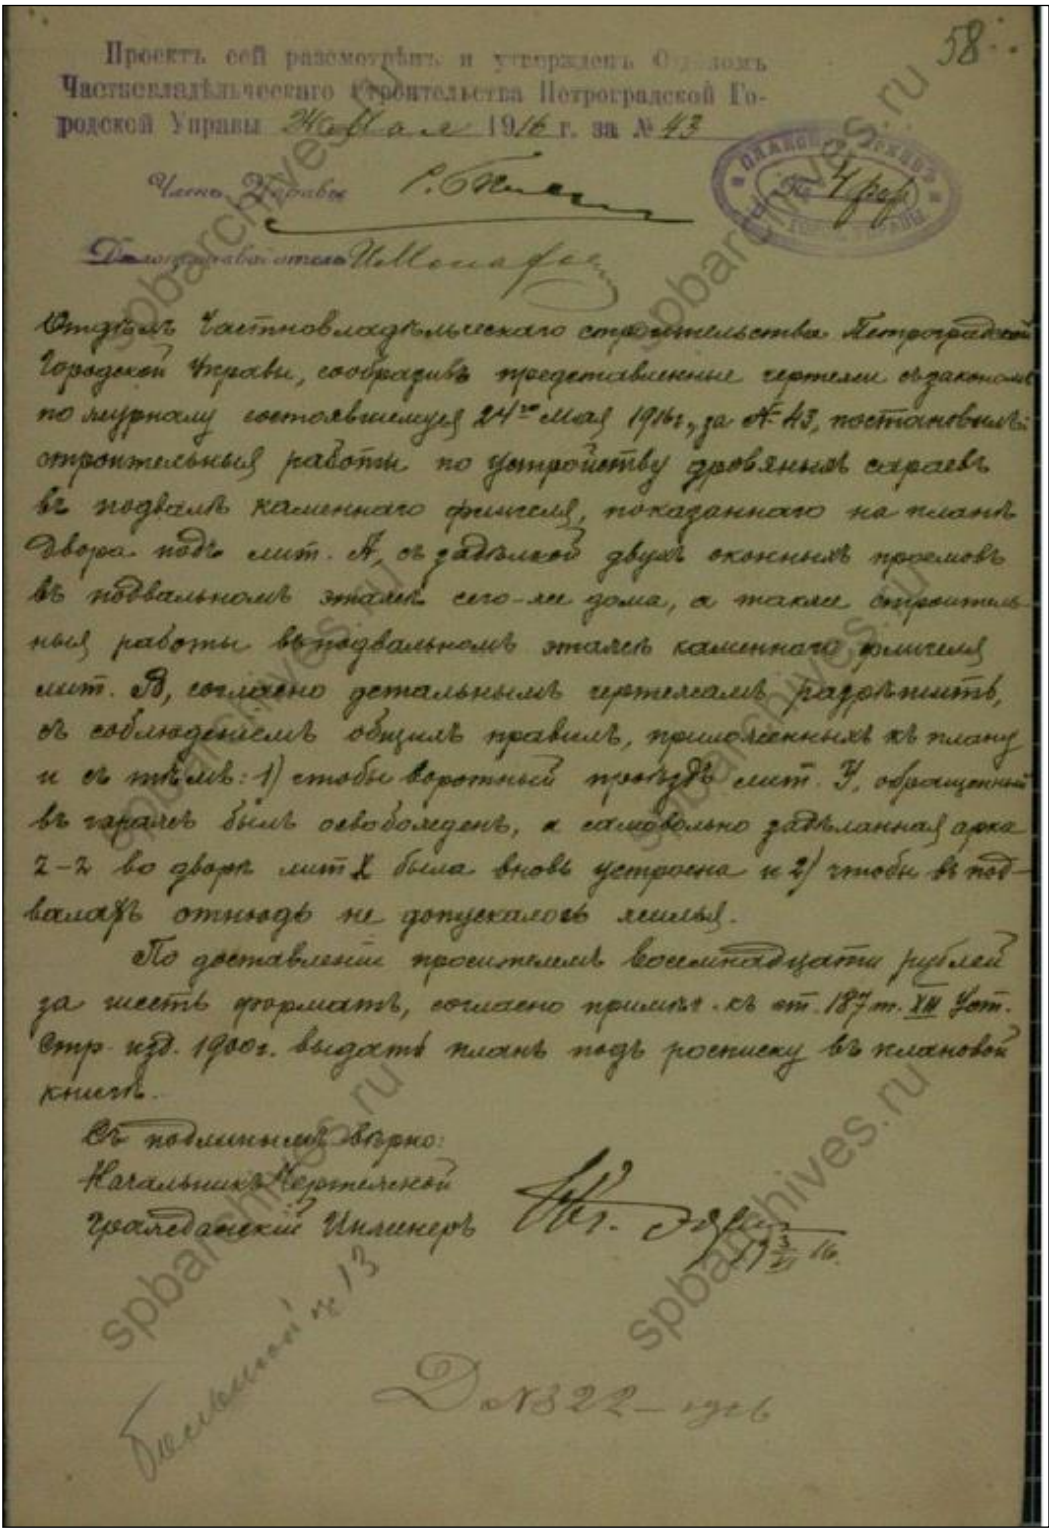 58
Проектъ сей разсмотрѣнъ и утвержденъ Отдѣломъ
Частновладѣльческаго Строительства Петроградской Го-
родской Управы 24 Мая 1916 г. за № 43
Членъ Управы
Дѣлопроизводитель
Отдѣлъ Частновладѣльческаго строительства Петроградской
Городской Управы, сообразивъ представленные чертежи съ закономъ
по журналу состоявшемуся 24го Мая 1916г., за № 43, постановилъ:
строительныя работы по устройству дровяныхъ сараевъ
въ подвалѣ каменнаго флигеля, показаннаго на планѣ
двора подъ лит. А, съ задѣлкой двухъ оконныхъ проемовъ
въ подвальномъ этажѣ сего-же дома, а также строитель-
ныя работы въ подвальномъ этажѣ каменнаго флигеля
лит. В, согласно детальнымъ чертежамъ разрѣшить,
съ соблюденіемъ общихъ правилъ, приложенныхъ къ плану
и съ тѣмъ: 1) чтобы воротный проѣздъ лит. У, обращенный
въ гаражъ былъ освобожденъ, а самовольно задѣланная арка
2-2 во дворѣ лит X была вновь устроена и 2) чтобы въ под-
валахъ отнюдь не допускалось жилья.
По доставленіи просителемъ восемнадцати рублей
за шесть форматъ, согласно примѣч. къ ст. 187 т. XII Уст.
Стр. изд. 1900г. выдать планъ подъ росписку въ плановой
книгѣ.
Съ подлиннымъ вѣрно:
Начальникъ Чертежной
Гражданскій Инженеръ
Большой 13
Д №322-1916